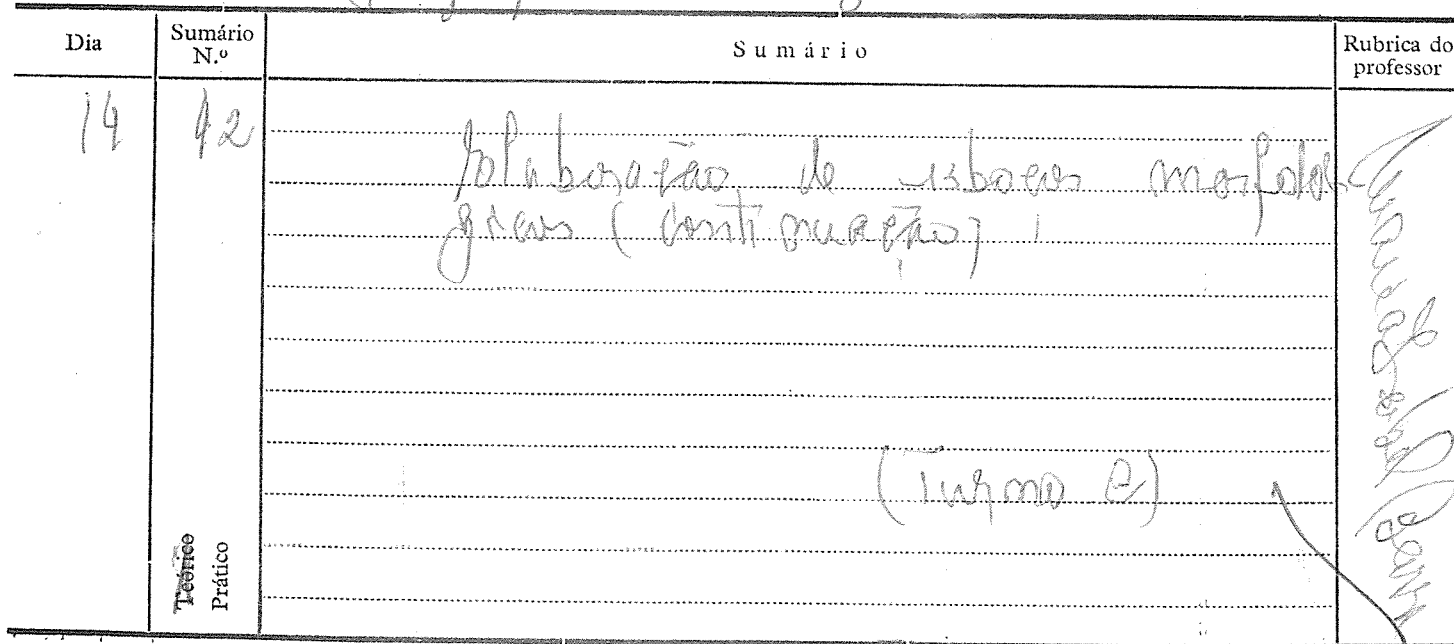 Dia
Sumário N.º
Sumário
Rubrica do professor
14
12
Elaboração de esboços morfoló-
gicos (continuação)
(Turma B)
Teórico
Prático